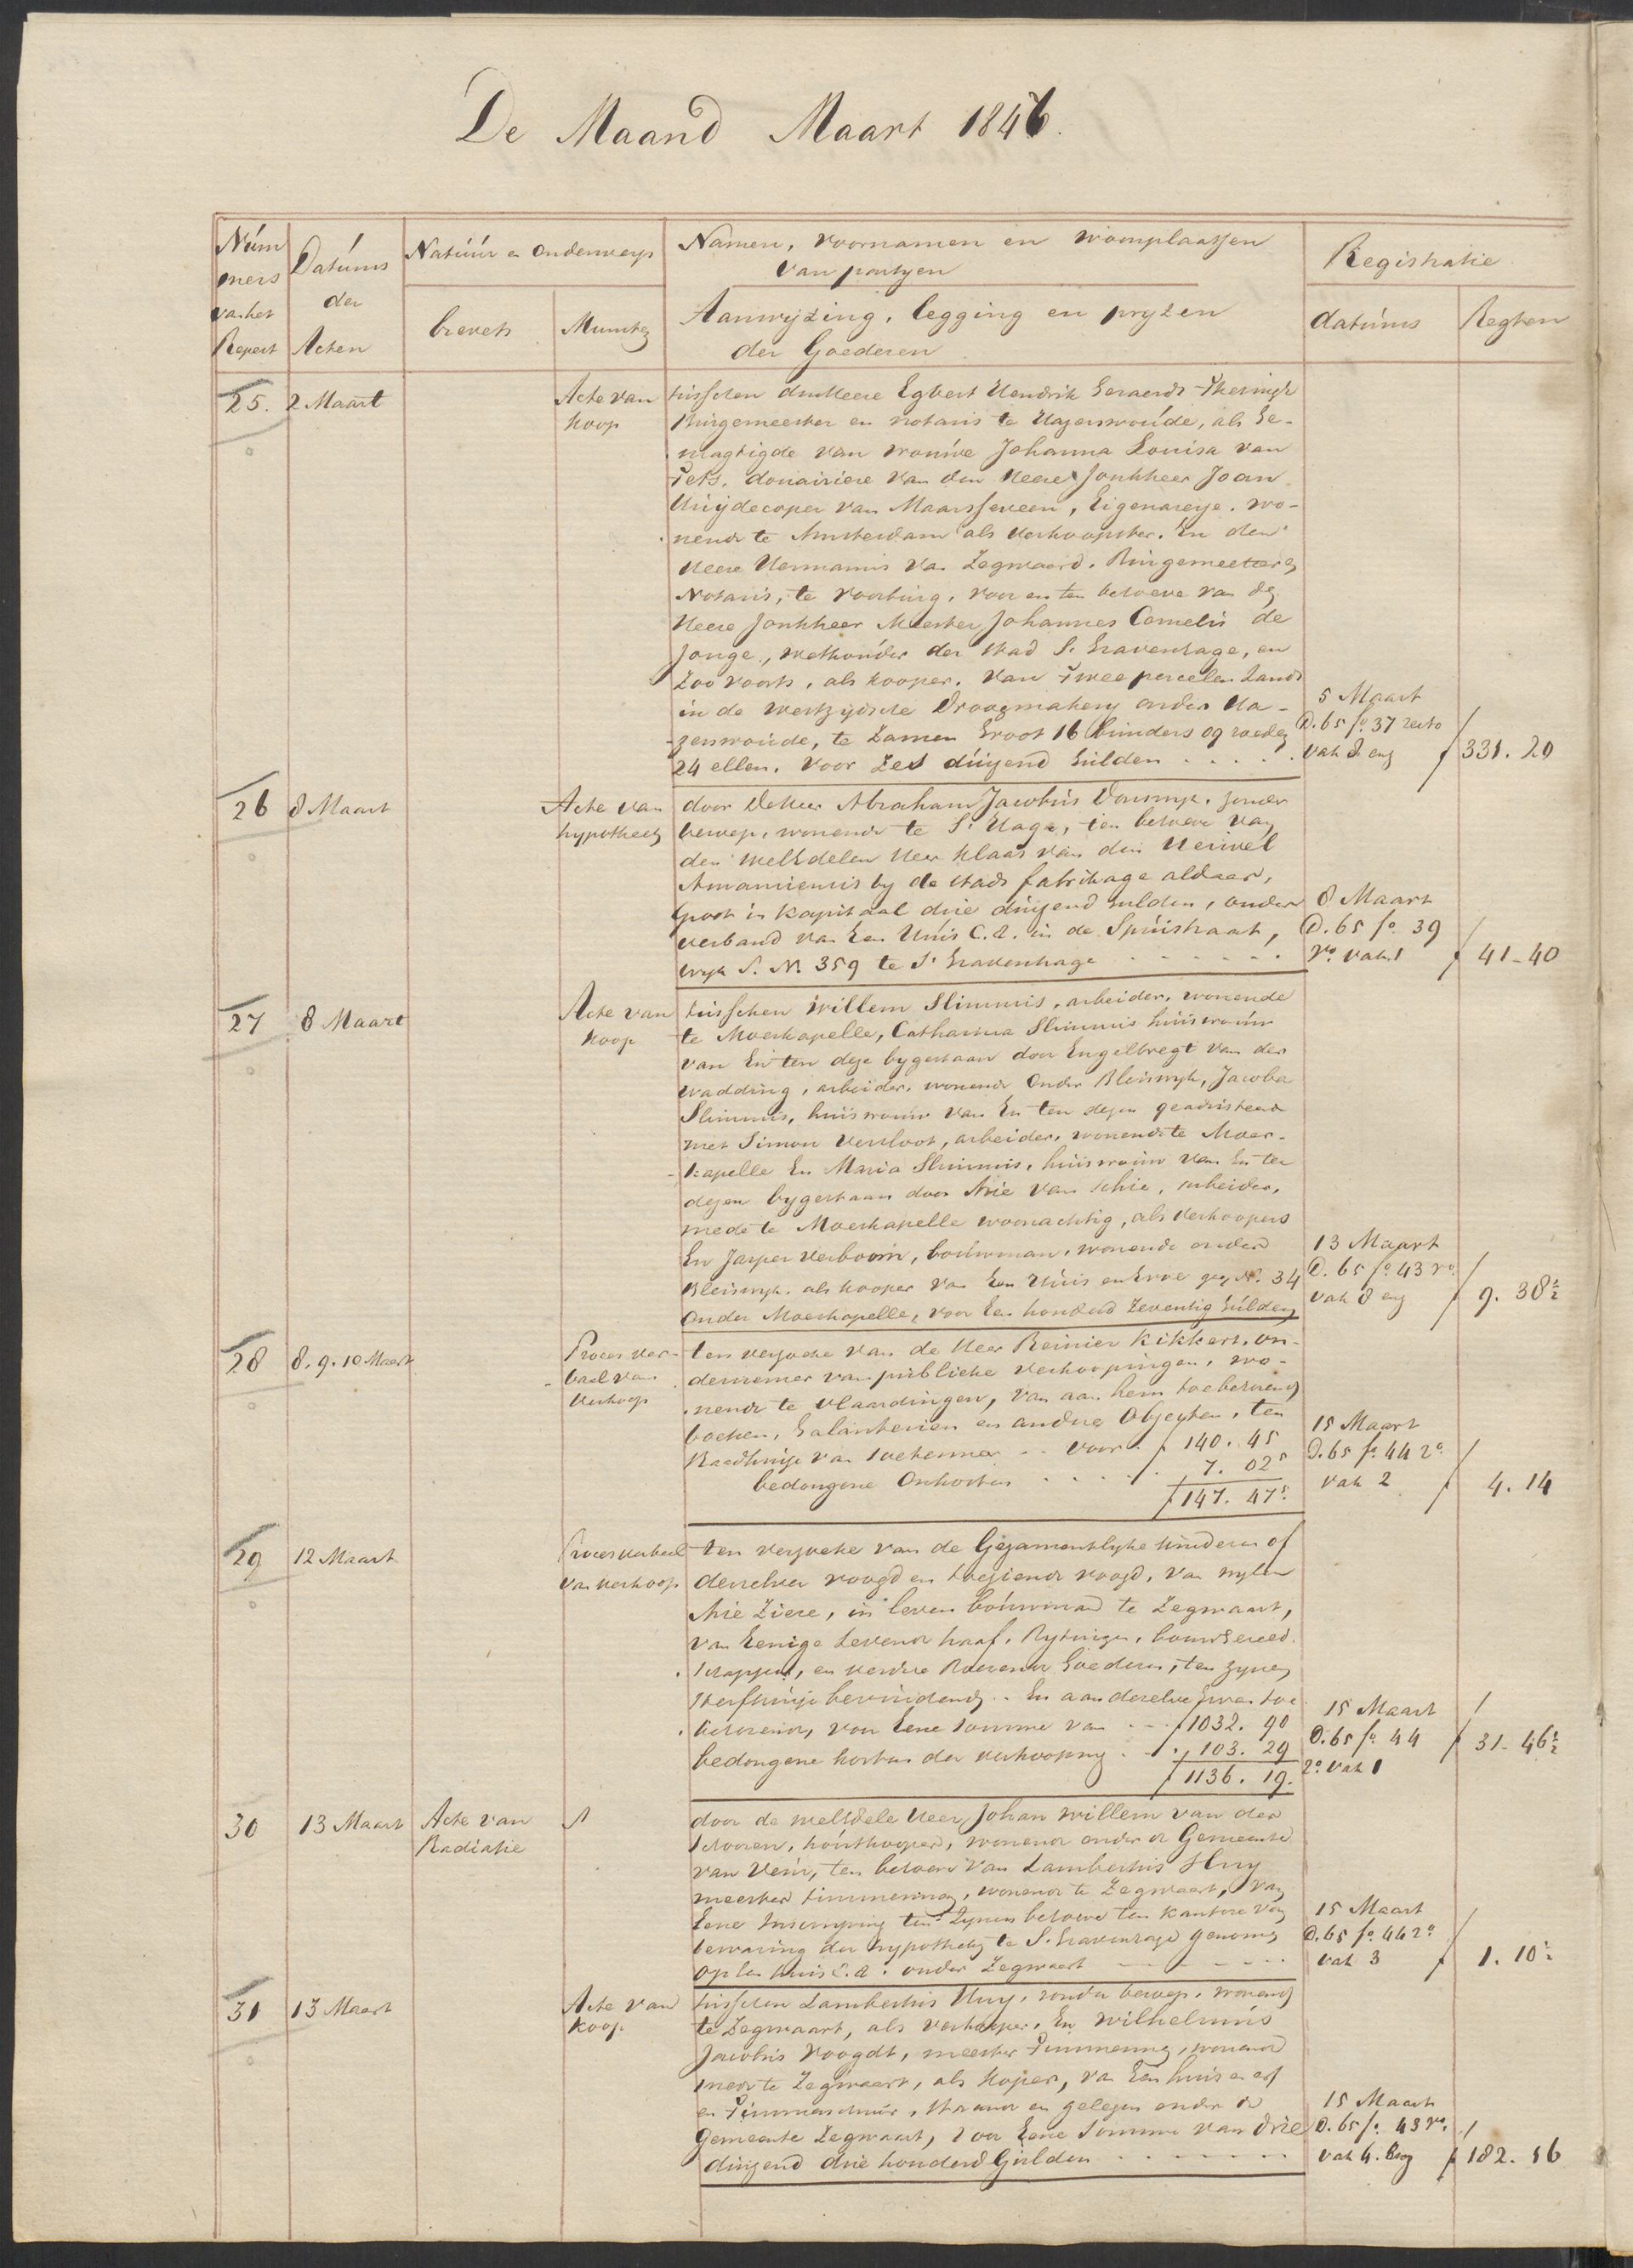 De Maand Maart 1846.
Núm
mers
van het
Repert
Datúms
der
Acten
Natúúr en Onderwerp
brevets
Munten
Namen, voornamen en woonplaatsen
van partyen
Aanwyzing, legging en pryzen
der Goederen
Registratie
datúms
Regten
25. 2 Maart
Acte van
koop
tusschen den Heere Egbert Hendrik Geraerdt
Burgemeester en notaris te Hazerswoúde, als Ge-
magtigde van vrouwe Johanna Louisa van
douairiere van den Heere Jonkheer Joan
Huijdecoper van Maarsseveen, Eigenaresse, wo-
nende te Amsterdam als verkoopster. En den
Heere Hermanus van Zegwaard, Burgemeester en
Notaris, te Voorburg, voor en ten behoeve van den
Heere Jonkheer Meester Johannes Cornelis de
Jonge, wethoúder der stad S. Gravenhage, en
zoo voorts, als kooper. Van Twee perceelen Lands
in de westzydsche Droogmakery onder Ha-
zerswoúde, te zamen Groot 16 bunders 09 roeden
24 ellen. Voor Zes dúizend Gúlden . . . . .
5 Maart
D. 65 fo. 37 recto
vak 8 en
f 331. 20
26 8 Maart
Acte van
hypotheek
door De Heer Abraham Jacobús zonder
beroep, wonende te S. Hage, ten behoeve van
den WelEdelen Heer Klaas van den Heúvel
by de stads fabrikage aldaar,
groot in kapitaal drie dúizend Gulden, onder
verband van Een Húis C.A. in de Spúistraat,
wyk S. N. 359 te S. Gravenhage . . . . .
8 Maart
D. 65 fo. 39
vo. vak 1
f 41-40
27 8 Maart
Acte van
koop
tusschen Willem Slimmis, arbeider, wonende
te Moerkapelle, Catharina Slimmis húisvroúw
van En ten deze bygestaan door Engelbregt van der
Wadding, arbeider, wonende Onder Bleiswyk, Jacoba
Slimmis, húisvroúw van En ten dezen geadsisteerd
met Simon Versloot, arbeider, wonende te Moer-
kapelle En Maria Slimmis, húisvroúw van En ten
dezen bygestaan door Arie van Schie, arbeider,
mede te Moerkapelle woonachtig, als verkoopers
En Jasper Verboom, boúwman, wonende onder
Bleiswyk, als kooper van Een Húis en Erve get. No. 34
Onder Moerkapelle, voor Een honderd Zeventig Gúlden
13 Maart
D. 65 fo. 43 vo.
vak 8 en
f 9. 38½
28 8. 9. 10 Maart
Proces ver-
baal van
Verkoop
ten verzoeke van de Heer Reinier Kikkert, on-
dernemer van publieke verkoopingen, wo-
nende te Vlaardingen, van aan hem toebehorende
boeken, Galanterien en andere Objecten, ten
Raadhúize van Soetermeer . . voor . f 140. 45
bedongene Onkosten . . . . . 7. 02⁵
f 147. 47⁵
15 Maart
D. 65 fo. 44 ro.
vak 2
f 4. 14
29 12 Maart
Procesverbaal
van verkoop
ten verzoeke van de Gezamentlyke kinderen of
derzelver voogd en toeziende voogd, van wylen
Arie Ziere, in leven boúwman te Zegwaart,
van Eenige Levende haaf, Rytuigen, bouwGereed-
schappen, en verdere Roerende Goederen, ten zynen
sterfhúize bevindende. En aan dezelve Erven toe
behorende, voor Eene somme van . . f 1032. 90
bedongene kosten der verkooping . . . 103. 29
f 1136. 19.
15 Maart
D. 65 fo. 44
ro. vak 1
f 31-46½
30 13 Maart Acte van
Radiatie
door de welEdele Heer Johan Willem van der
Schooren, hoútkooper, wonende onder de Gemeente
van Veúr, ten behoeve van Lambertús Húy
meester timmerman, wonende te Zegwaart, van
Eene Inscryving ten zynen behoeve ten kantore van
bewaring der hypotheken te S. Gravenhage genomen
op Een húis C.A. onder Zegwaart . . . .
15 Maart
D. 65 fo. 44 ro.
vak 3
f 1. 10½
31 13 Maart
Acte van
koop
tusschen Lambertús Húy, zonder beroep, wonende
te Zegwaart, als verkooper, En Wilhelmús
Jacobús Voogdt, meester Timmerman, wonende
mede te Zegwaart, als koper, van Een húis en erf
en Timmerschúúr, staande en gelegen onder de
Gemeente Zegwaart, voor Eene Somme van drie
dúizend drie honderd Gúlden . . . . .
15 Maart
D. 65 fo. 43 vo.
vak 4.
f 182. 16